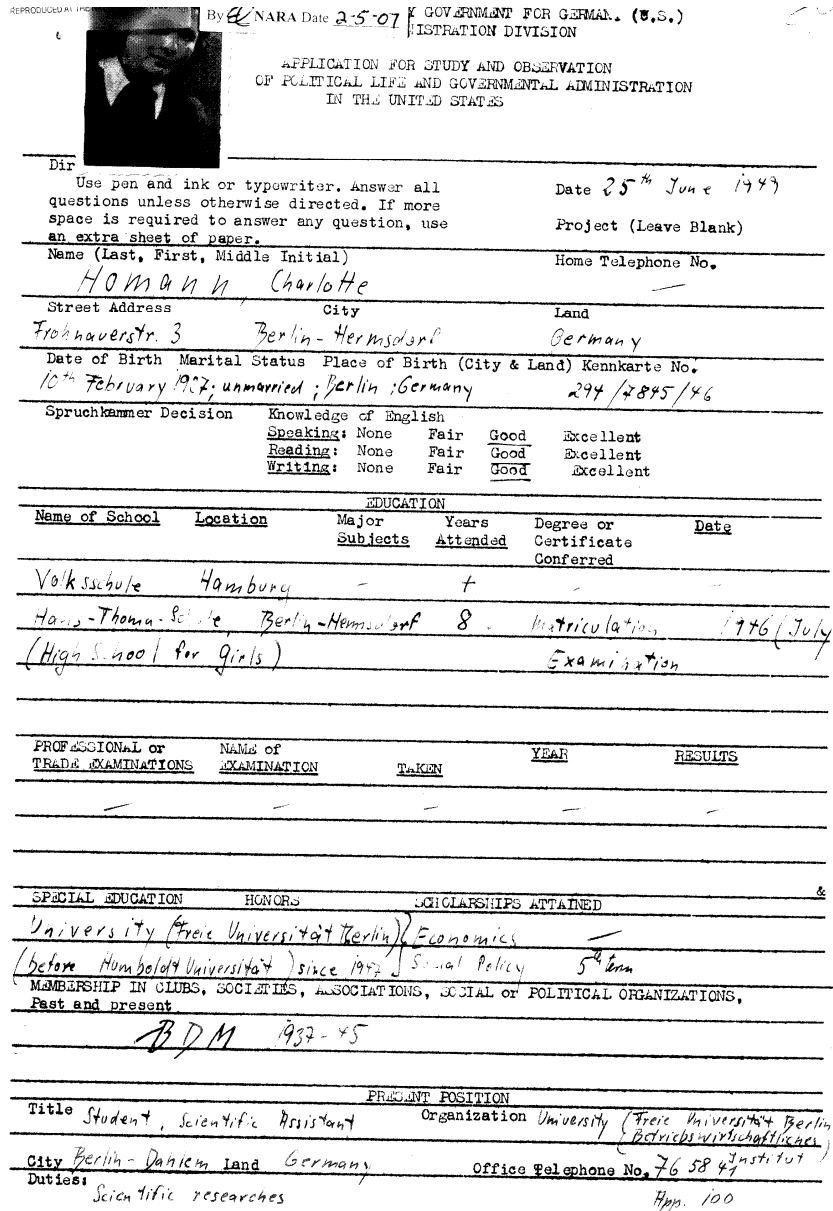 REPRODUCED AT THE
By NARA Date 2-5-07
GOVERNMENT FOR GERMAN. (U.S.)
ISTRATION DIVISION
APPLICATION FOR STUDY AND OBSERVATION
OF POLITICAL LIFE AND GOVERNMENTAL ADMINISTRATION
IN THE UNITED STATES
Dir
Use pen and ink or typewriter. Answer all
questions unless otherwise directed. If more
space is required to answer any question, use
an extra sheet of paper.
Date 25th June 1949
Project (Leave Blank)
Name (Last, First, Middle Initial) Home Telephone No.
Homann, Charlotte —
Street Address City Land
Frohnauerstr. 3 Berlin-Hermsdorf Germany
Date of Birth Marital Status Place of Birth (City & Land) Kennkarte No.
10th February 1927; unmarried; Berlin; Germany 294/7845/46
Spruchkammer Decision Knowledge of English
Speaking: None Fair Good Excellent
Reading: None Fair Good Excellent
Writing: None Fair Good Excellent
EDUCATION
Name of School Location Major Subjects Years Attended Degree or Certificate Conferred Date
Volksschule Hamburg – 4 – –
Hans-Thoma-Schule, Berlin-Hermsdorf 8 Matriculation 1946 (July
(High School for girls) Examination
PROFESSIONAL or TRADE EXAMINATIONS NAME of EXAMINATION TAKEN YEAR RESULTS
— — — — —
&
SPECIAL EDUCATION HONORS SCHOLARSHIPS ATTAINED
University (Freie Universität Berlin) Economics —
(before Humboldt Universität) since 1947 Social Policy 5th term
MEMBERSHIP IN CLUBS, SOCIETIES, ASSOCIATIONS, SOCIAL or POLITICAL ORGANIZATIONS,
Past and present
BDM 1937-45
PRESENT POSITION
Title Student, Scientific Assistant Organization University (Freie Universität Berlin
Betriebswirtschaftliches
Institut)
City Berlin-Dahlem Land Germany Office Telephone No. 76 58 41
Duties:
Scientific researches App. 100